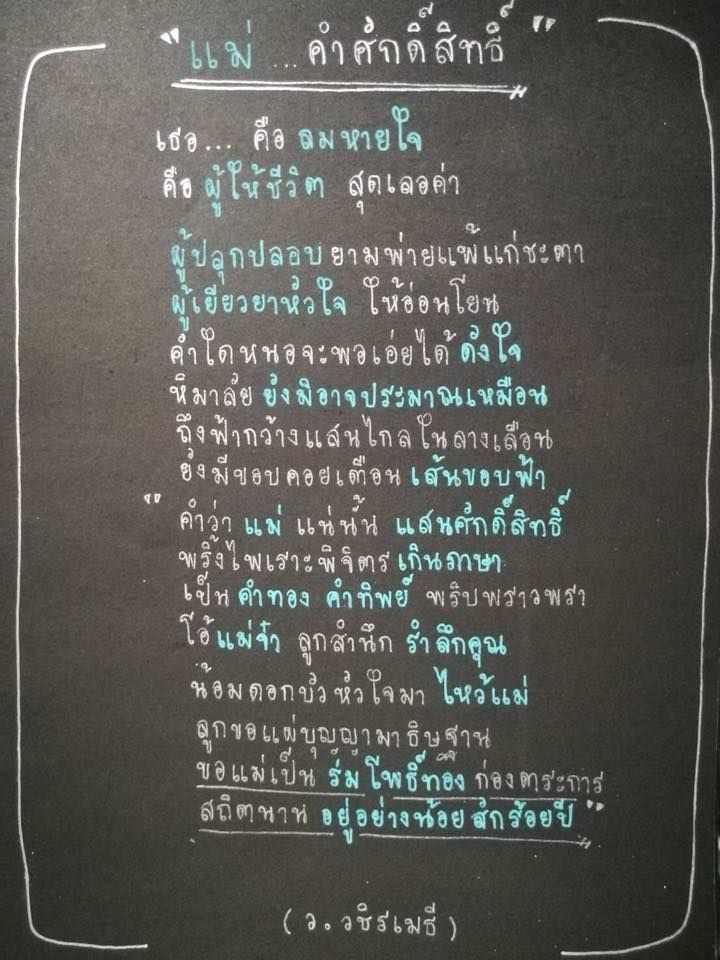 "แม่ ... คำศักดิ์สิทธิ์"
เธอ... คือ ลมหายใจ
คือ ผู้ให้ชีวิต สุดเลอค่า
ผู้ปลุกปลอบ ยามพ่ายแพ้แก่ชะตา
ผู้เยียวยาหัวใจ ให้อ่อนโยน
คำใดหนอจะพอเอ่ยได้ ดังใจ
หิมาลัย ยังมิอาจประมาณเหมือน
ถึงฟ้ากว้างแสนไกลในลางเลือน
ยังมีขอบคอยเตือน เส้นขอบฟ้า
"คำว่า แม่ แน่นั้น แสนศักดิ์สิทธิ์
พริ้งไพเราะพิจิตร เกินภาษา
เป็น คำทอง คำทิพย์ พริบพราวพรา
โอ้แม่จ๋า ลูกสำนึก รำลึกคุณ
น้อมดอกบัวหัวใจมา ไหว้แม่
ลูกขอแผ่บุญญามาธิษฐาน
ขอแม่เป็น ร่มโพธิ์ทอง ก่องตระการ
สถิตนาน อยู่อย่างน้อยสักร้อยปี"
(ว.วชิรเมธี)